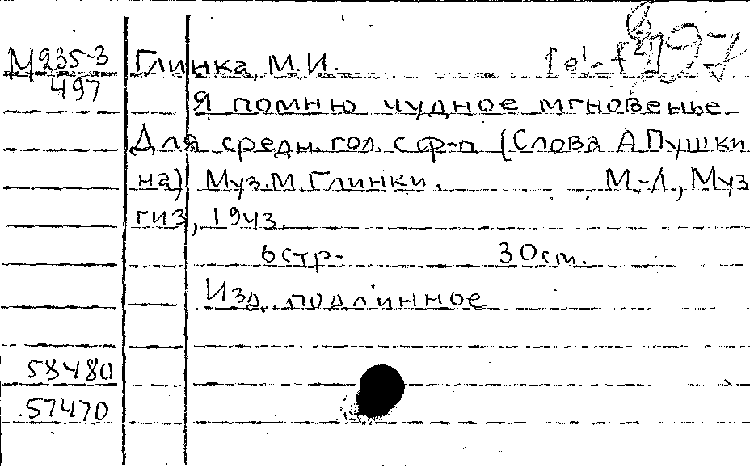 М235-3 Глинка, М.И. [e'-f²]
497 Я помню чудное мгновенье.
Для средн. гол. с ф-п (Слова А.Пушки
на) Муз. М. Глинки. М.-Л., Муз
гиз, 1943
6 стр. 30 см.
Изд. подлинное
58480
57470